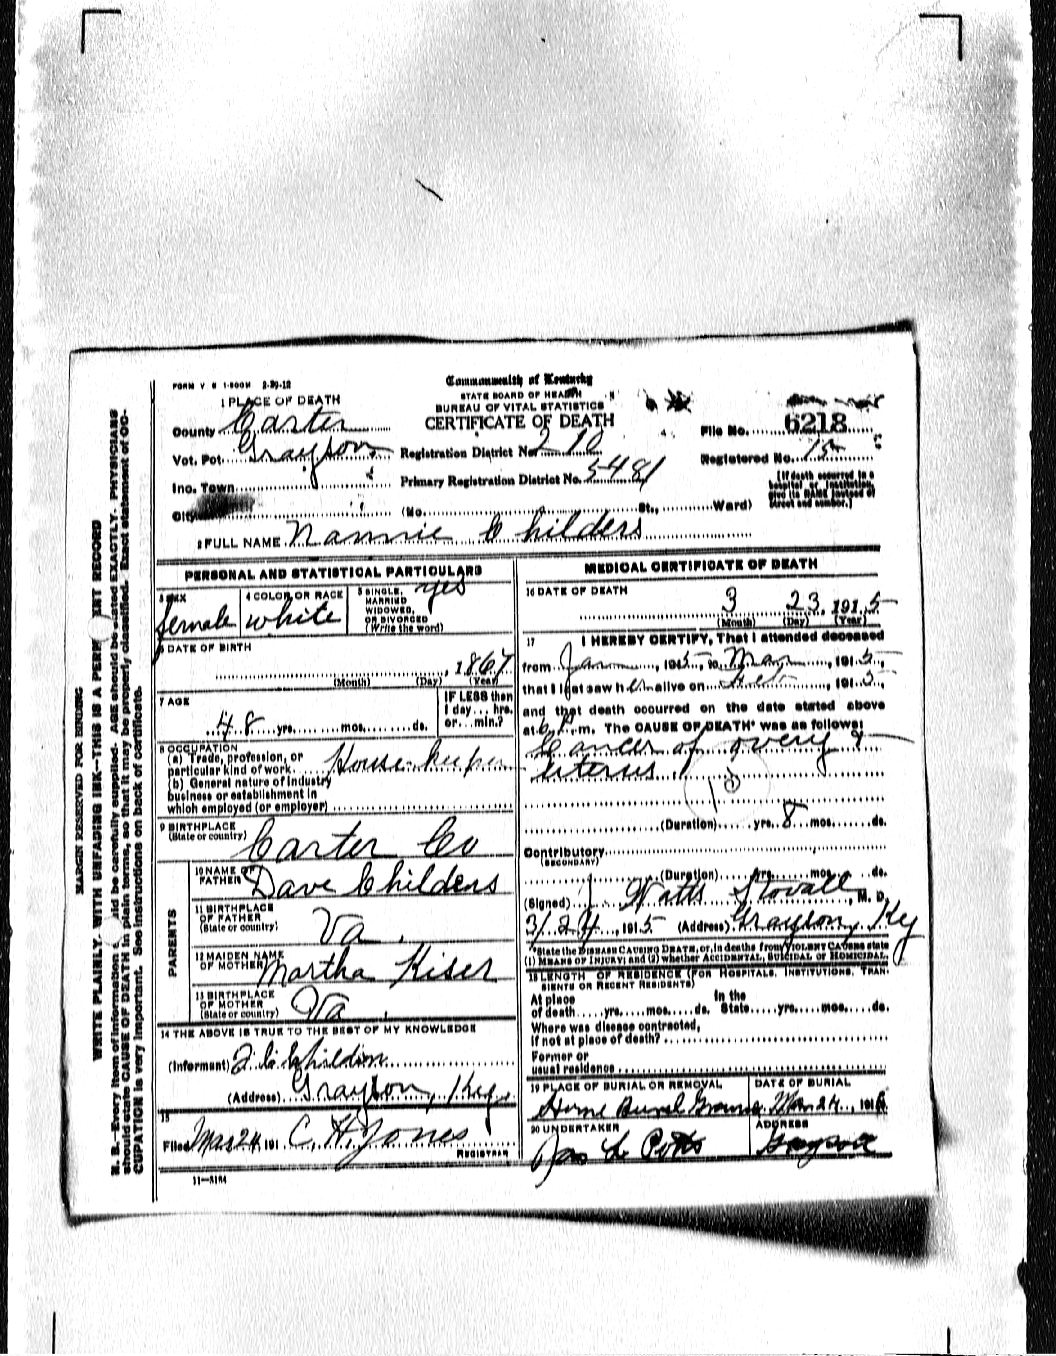 FORM V S 1-500M 2-29-12
Commonwealth of Kentucky
STATE BOARD OF HEALTH
BUREAU OF VITAL STATISTICS
CERTIFICATE OF DEATH
1 PLACE OF DEATH
County Carter
Vot. Pct. Grayson
Inc. Town
City
Registration District No. 210
Primary Registration District No. 5481
(No. St., Ward)
File No. 6218
Registered No. 15
[If death occurred in a
hospital or institution,
give its NAME instead of
street and number.]
2 FULL NAME Nannie Childers
PERSONAL AND STATISTICAL PARTICULARS
3 SEX
female
4 COLOR OR RACE
white
5 SINGLE,
MARRIED
WIDOWED,
OR DIVORCED
(Write the word)
yes
6 DATE OF BIRTH
, 1867
(Month) (Day) (Year)
7 AGE
48 yrs. mos. ds.
IF LESS than
1 day... hrs.
or... min.?
8 OCCUPATION
(a) Trade, profession, or
particular kind of work House keeper
(b) General nature of industry
business or establishment in
which employed (or employer)
9 BIRTHPLACE
(State or country) Carter Co
PARENTS
10 NAME OF
FATHER Dave Childers
11 BIRTHPLACE
OF FATHER
(State or country) Va.
12 MAIDEN NAME
OF MOTHER Martha Kiser
13 BIRTHPLACE
OF MOTHER
(State or country) Va.
14 THE ABOVE IS TRUE TO THE BEST OF MY KNOWLEDGE
(Informant)
(Address) Grayson, Ky.
15
Filed Mar 24 191 C. H. Jones
REGISTRAR
11—3184
MEDICAL CERTIFICATE OF DEATH
16 DATE OF DEATH
3 23, 1915
(Month) (Day) (Year)
17 I HEREBY CERTIFY, That I attended deceased
from Jan, 1915, to Mar, 1915,
that I last saw her alive on Feb, 1915,
and that death occurred on the date stated above
at 6 P.m. The CAUSE OF DEATH* was as follows:
Cancer of overy &
uterus
(Duration) yrs. 8 mos. ds.
Contributory
(SECONDARY)
(Duration) yrs. mos. ds.
(Signed) J Watts Stovall, M. D.
3/24, 1915 (Address) Grayson, Ky
*State the DISEASE CAUSING DEATH, or, in deaths from VIOLENT CAUSES state
(1) MEANS OF INJURY; and (2) whether ACCIDENTAL, SUICIDAL or HOMICIDAL.
18 LENGTH OF RESIDENCE (FOR HOSPITALS, INSTITUTIONS, TRAN-
SIENTS OR RECENT RESIDENTS)
At place
of death yrs. mos. ds.
In the
State yrs. mos. ds.
Where was disease contracted,
if not at place of death?
Former or
usual residence
19 PLACE OF BURIAL OR REMOVAL
Home Burial Ground
DATE OF BURIAL
Mar 24, 191
20 UNDERTAKER
Jas
ADDRESS
Grayson
MARGIN RESERVED FOR BINDING
WRITE PLAINLY, WITH UNFADING INK—THIS IS A RECORD
N. B.—Every item of information should be carefully supplied. AGE should be stated EXACTLY. PHYSICIANS
should state CAUSE OF DEATH in plain terms, so that it may be properly classified. Exact statement of OC-
CUPATION is very important. See instructions on back of certificate.